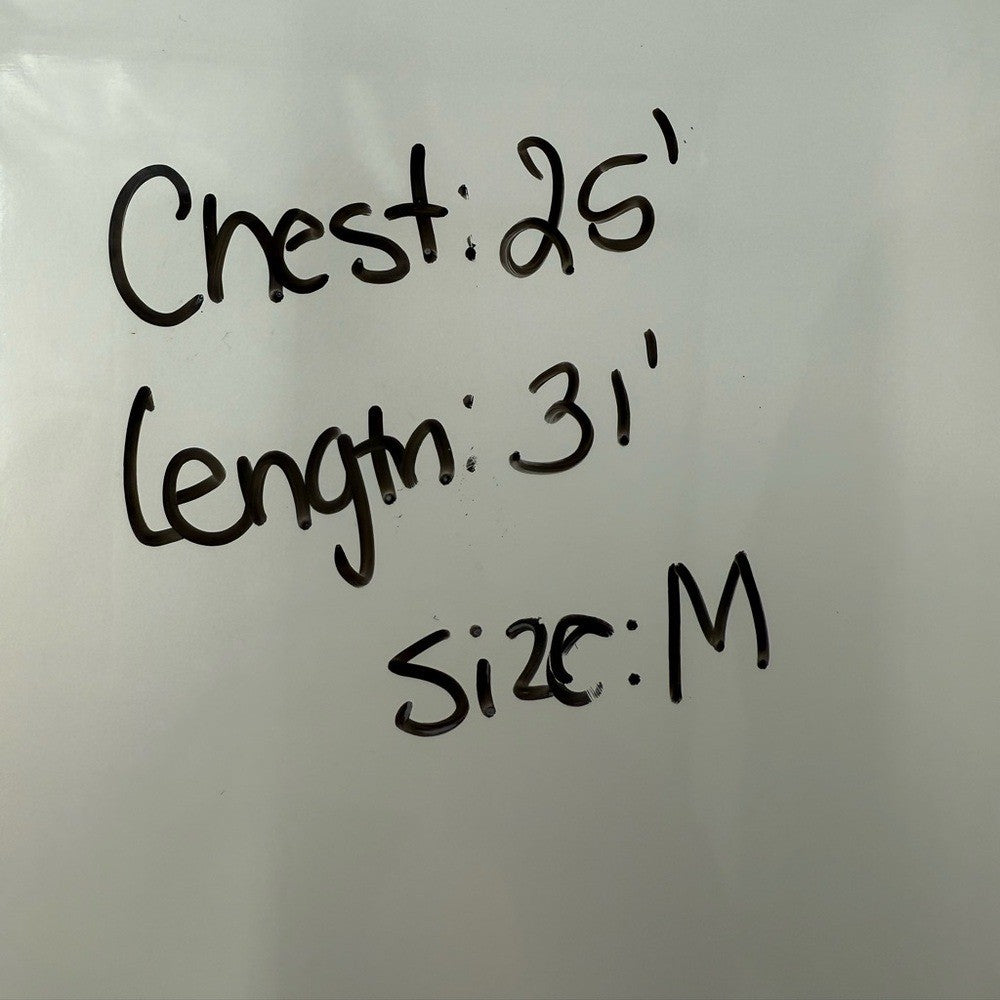 Chest: 25'
Length: 31'
Size: M